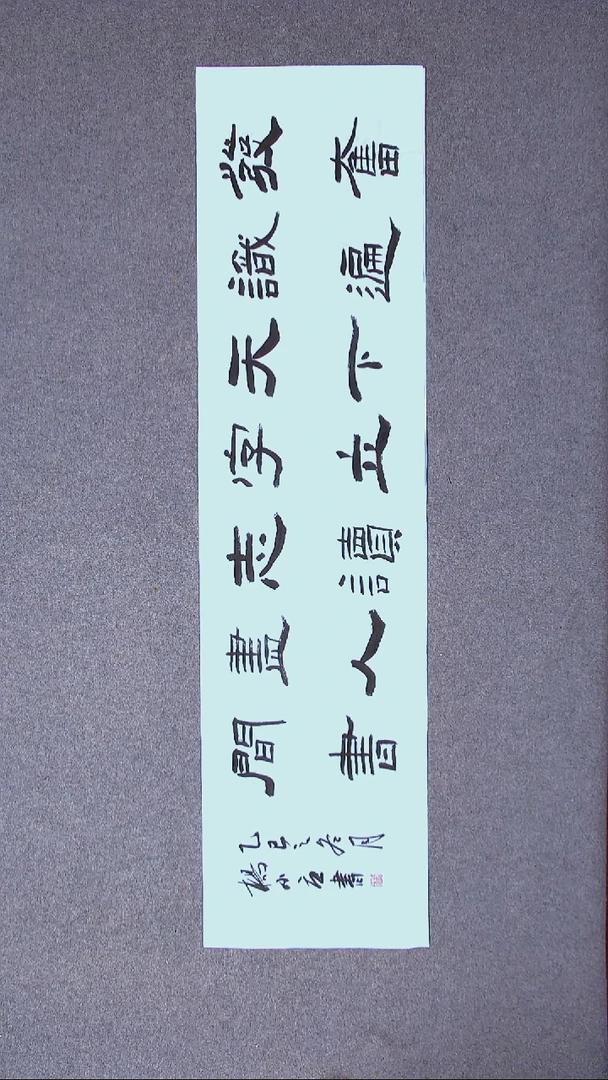 發奮
識遍
天下
字立
志讀
盡人
間書
乙巳之冬月
小書